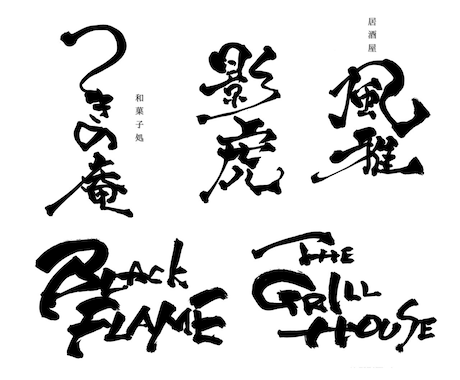 つきの庵
和菓子処
影虎
居酒屋
風雅
BLACK
FLAME
THE
GRILL
HOUSE